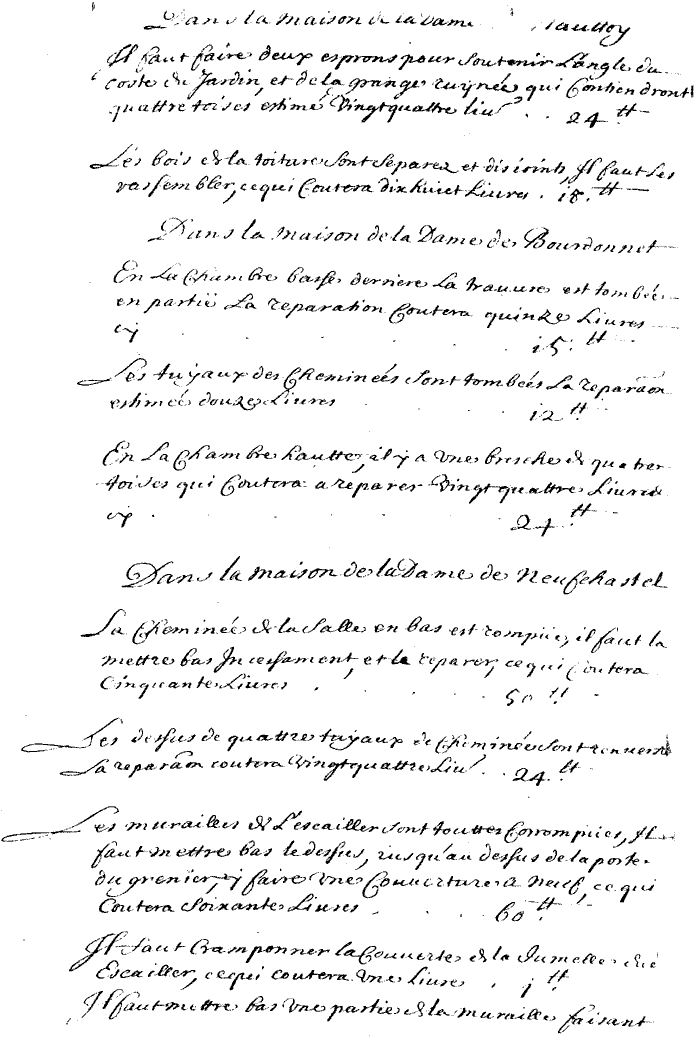 Dans la maison de la Dame
Il faut faire deux esprons pour soutenir L'angle du
coste du Jardin, et de la grange ruynée qui Contiendront
quattre toises estimé Vingtquattre liv 24 tt
Les bois de la toiture sont separez et disioints, Il faut Les
rassembler, ce qui Coutera dix huict Livres . 18. tt
Dans la maison de la Dame de Bourdonnet
En La Chambre basse derriere La travure est tombée
en partië La reparation Coutera quinze Livres
cy 15 tt
Les tuyaux des Cheminées sont tombées La reparaon
estimée douze Livres 12 tt
En La Chambre hautte, il y a Vne bresche de quatre
toises qui Coutera a reparer Vingt quattre Livres
cy 24 tt
Dans la maison de la Dame de Neufchastel
La Cheminée de la Salle en bas est rompüe, il faut la
mettre bas Incessament, et la reparer, ce qui Coutera
Cinquante Livres 50 tt
Les dessus de quattre tuyaux de Cheminée sont renversé
La reparaon coutera Vingtquattre Liv 24 tt
Les murailles de L'escailler sont touttes Corrompües, Il
faut mettre bas le dessus, iusqu'au dessus de la porte
du grenier, y faire Vne Couverture a Neuf, ce qui
Coutera Soixante Livres 60 tt
Il faut Cramponner la Couverte de la Jumelle
Escailler, ce qui coutera Vne Livre . 1 tt
Il faut mettre bas Vne partie de la muraille faisant